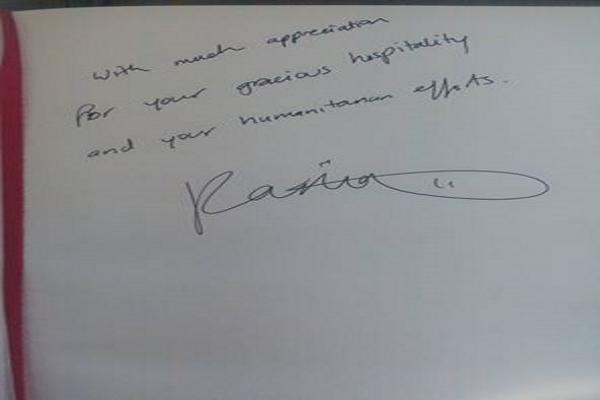 With much appreciation
for your gracious hospitality
and your humanitarian efforts.
Rania